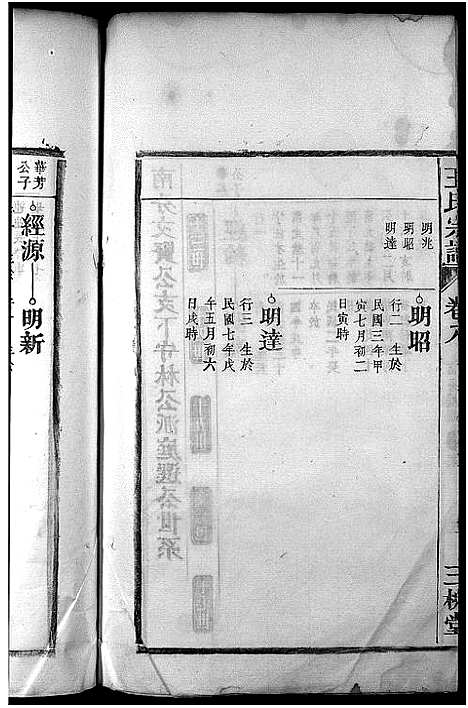 王氏宗譜
卷八
三槐堂
明兆
明昭
明達
明昭
行二 生於
民國三年甲
寅七月初二
日寅時
明達
行三 生於
民國七年戊
午五月初六
日戌時
華芳
公子
經源
明新